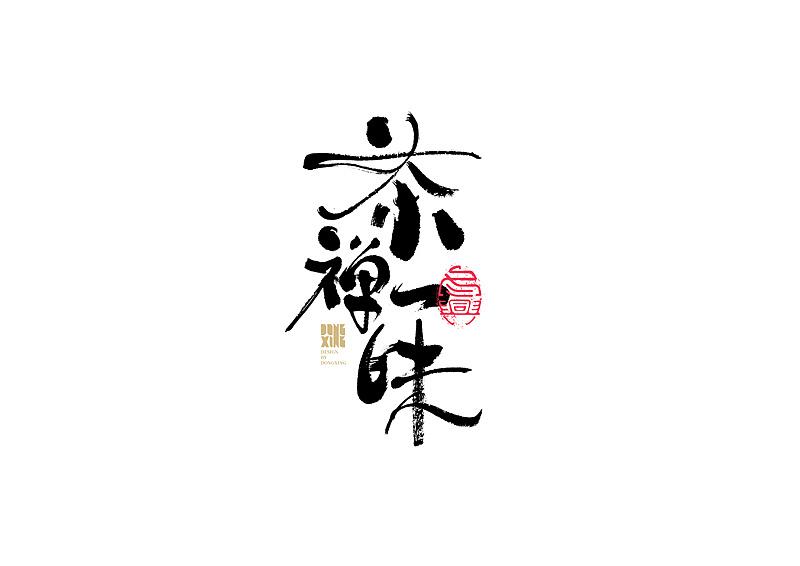 茶
禅一
味
DONG
XING
DESIGN
BY
DONGXING